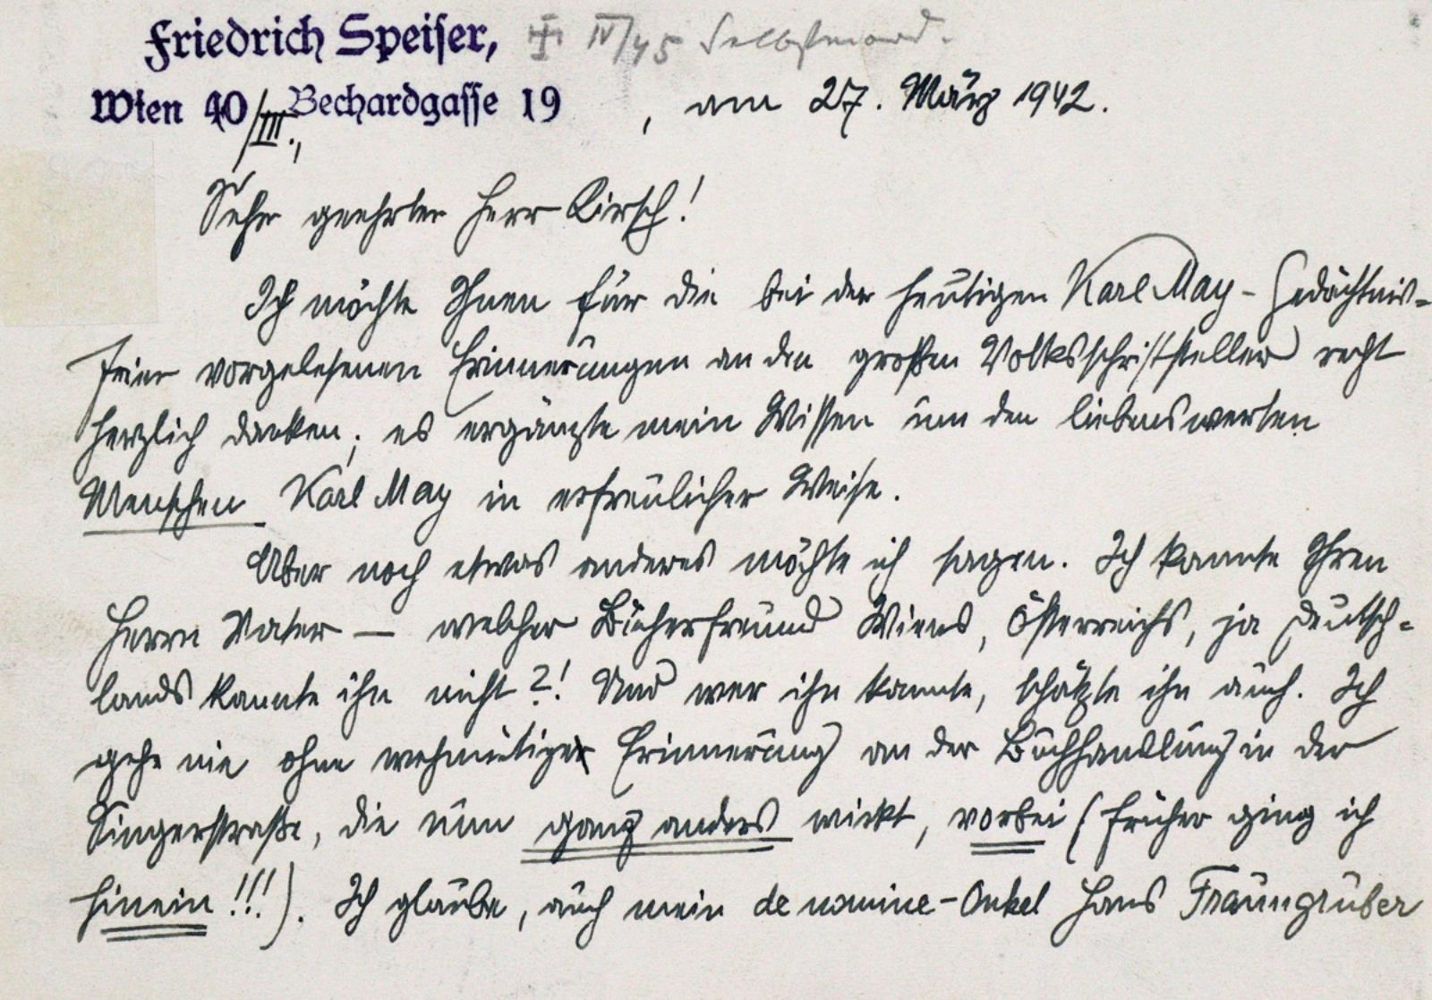 Friedrich Speiser, IV/45 Selbstmord.
Wien 40/III., Bechardgasse 19, am 27. März 1942.
Sehr geehrter Herr Kirsch!
Ich möchte Ihnen für die bei der heutigen Karl May-Gedächtnis-
feier vorgelesenen Erinnerungen an den großen Volksschriftsteller recht
herzlich danken; es ergänzte mein Wissen um den liebenswerten
Menschen Karl May in erfreulicher Weise.
Aber noch etwas anderes möchte ich sagen. Ich kannte Ihren
Herrn Vater — welcher Bücherfreund Wiens, Österreichs, ja Deutsch-
lands kannte ihn nicht?! Und wer ihn kannte, schätzte ihn auch. Ich
gehe nie ohne wehmütige Erinnerung an der Buchhandlung in der
Singerstraße, die nun ganz anders wirkt, vorbei (früher ging ich
hinein!!!). Ich glaube, auch mein de nomine-Onkel Hans Fraungruber